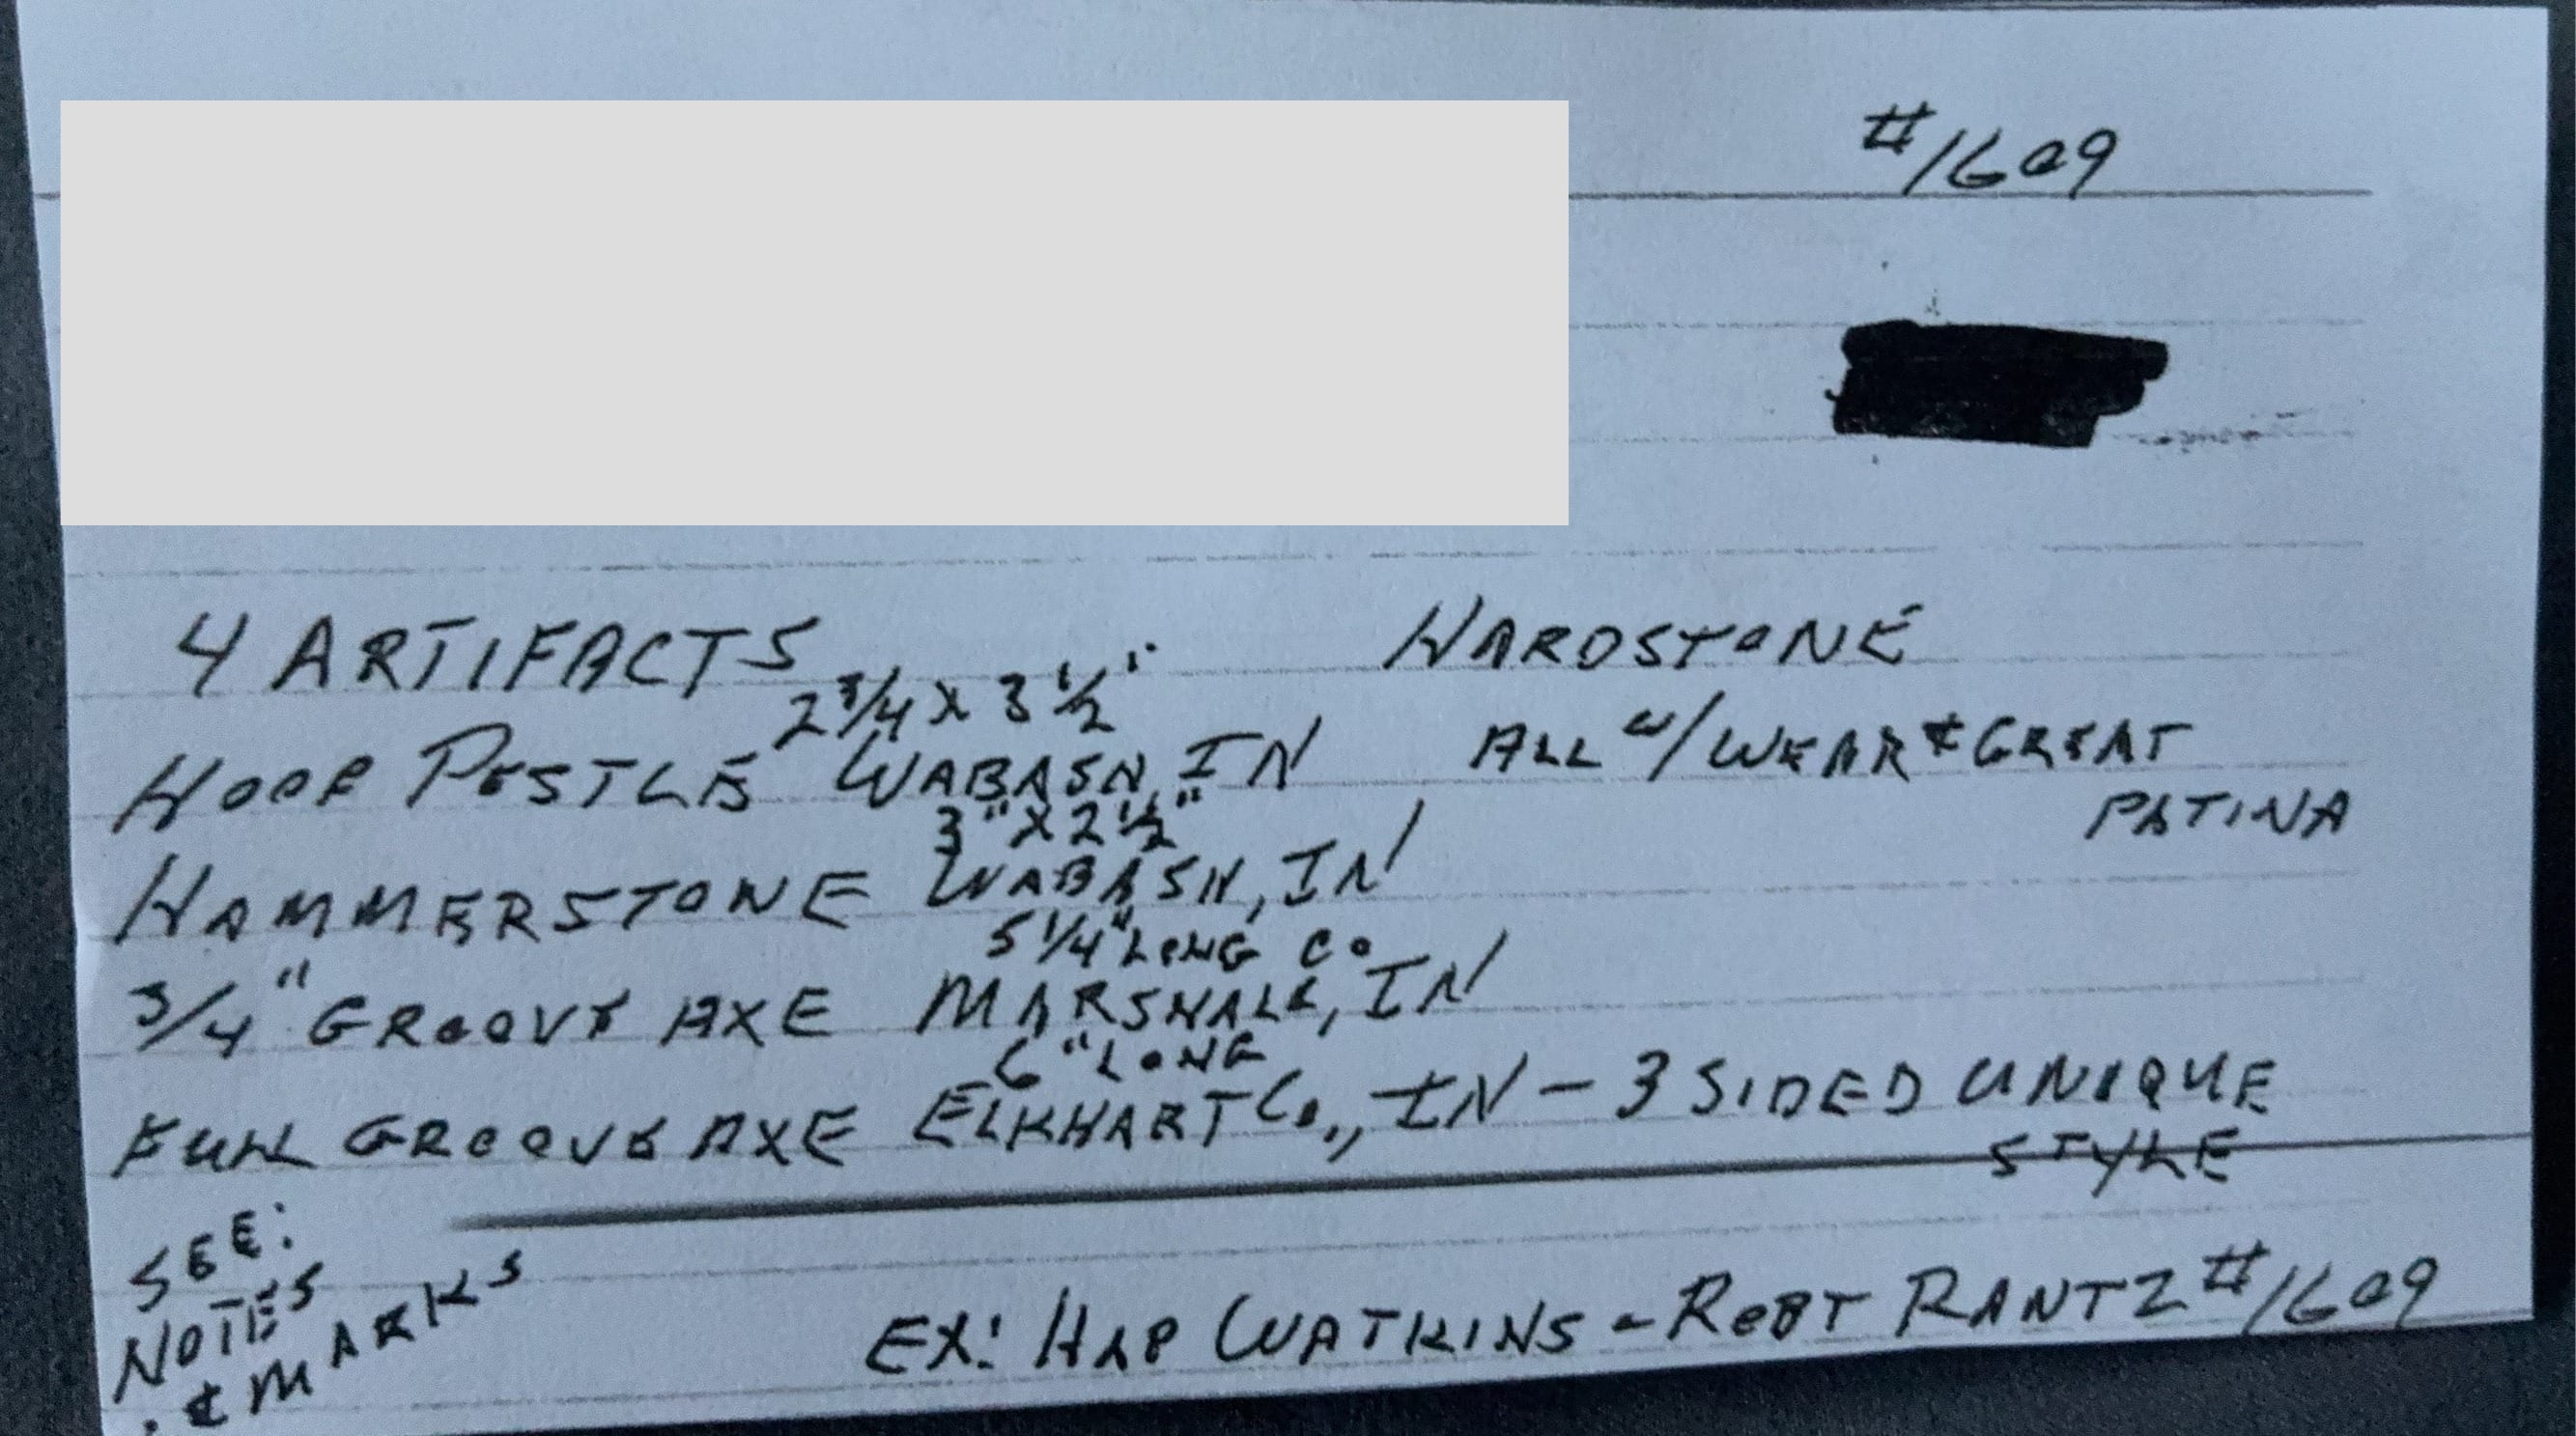 #1609
4 ARTIFACTS HARDSTONE
2 3/4 X 3 1/2"
HOOF PESTLE WABASH, IN ALL W/WEAR & GREAT
PATINA
3" X 2 1/2"
HAMMERSTONE WABASH, IN
5 1/4" LONG CO
3/4" GROOVE AXE MARSHALL, IN
6" LONG
FULL GROOVE AXE ELKHART CO., IN - 3 SIDED UNIQUE
STYLE
SEE:
NOTES
& MARKS
EX: HAP WATKINS - ROBT RANTZ #1609